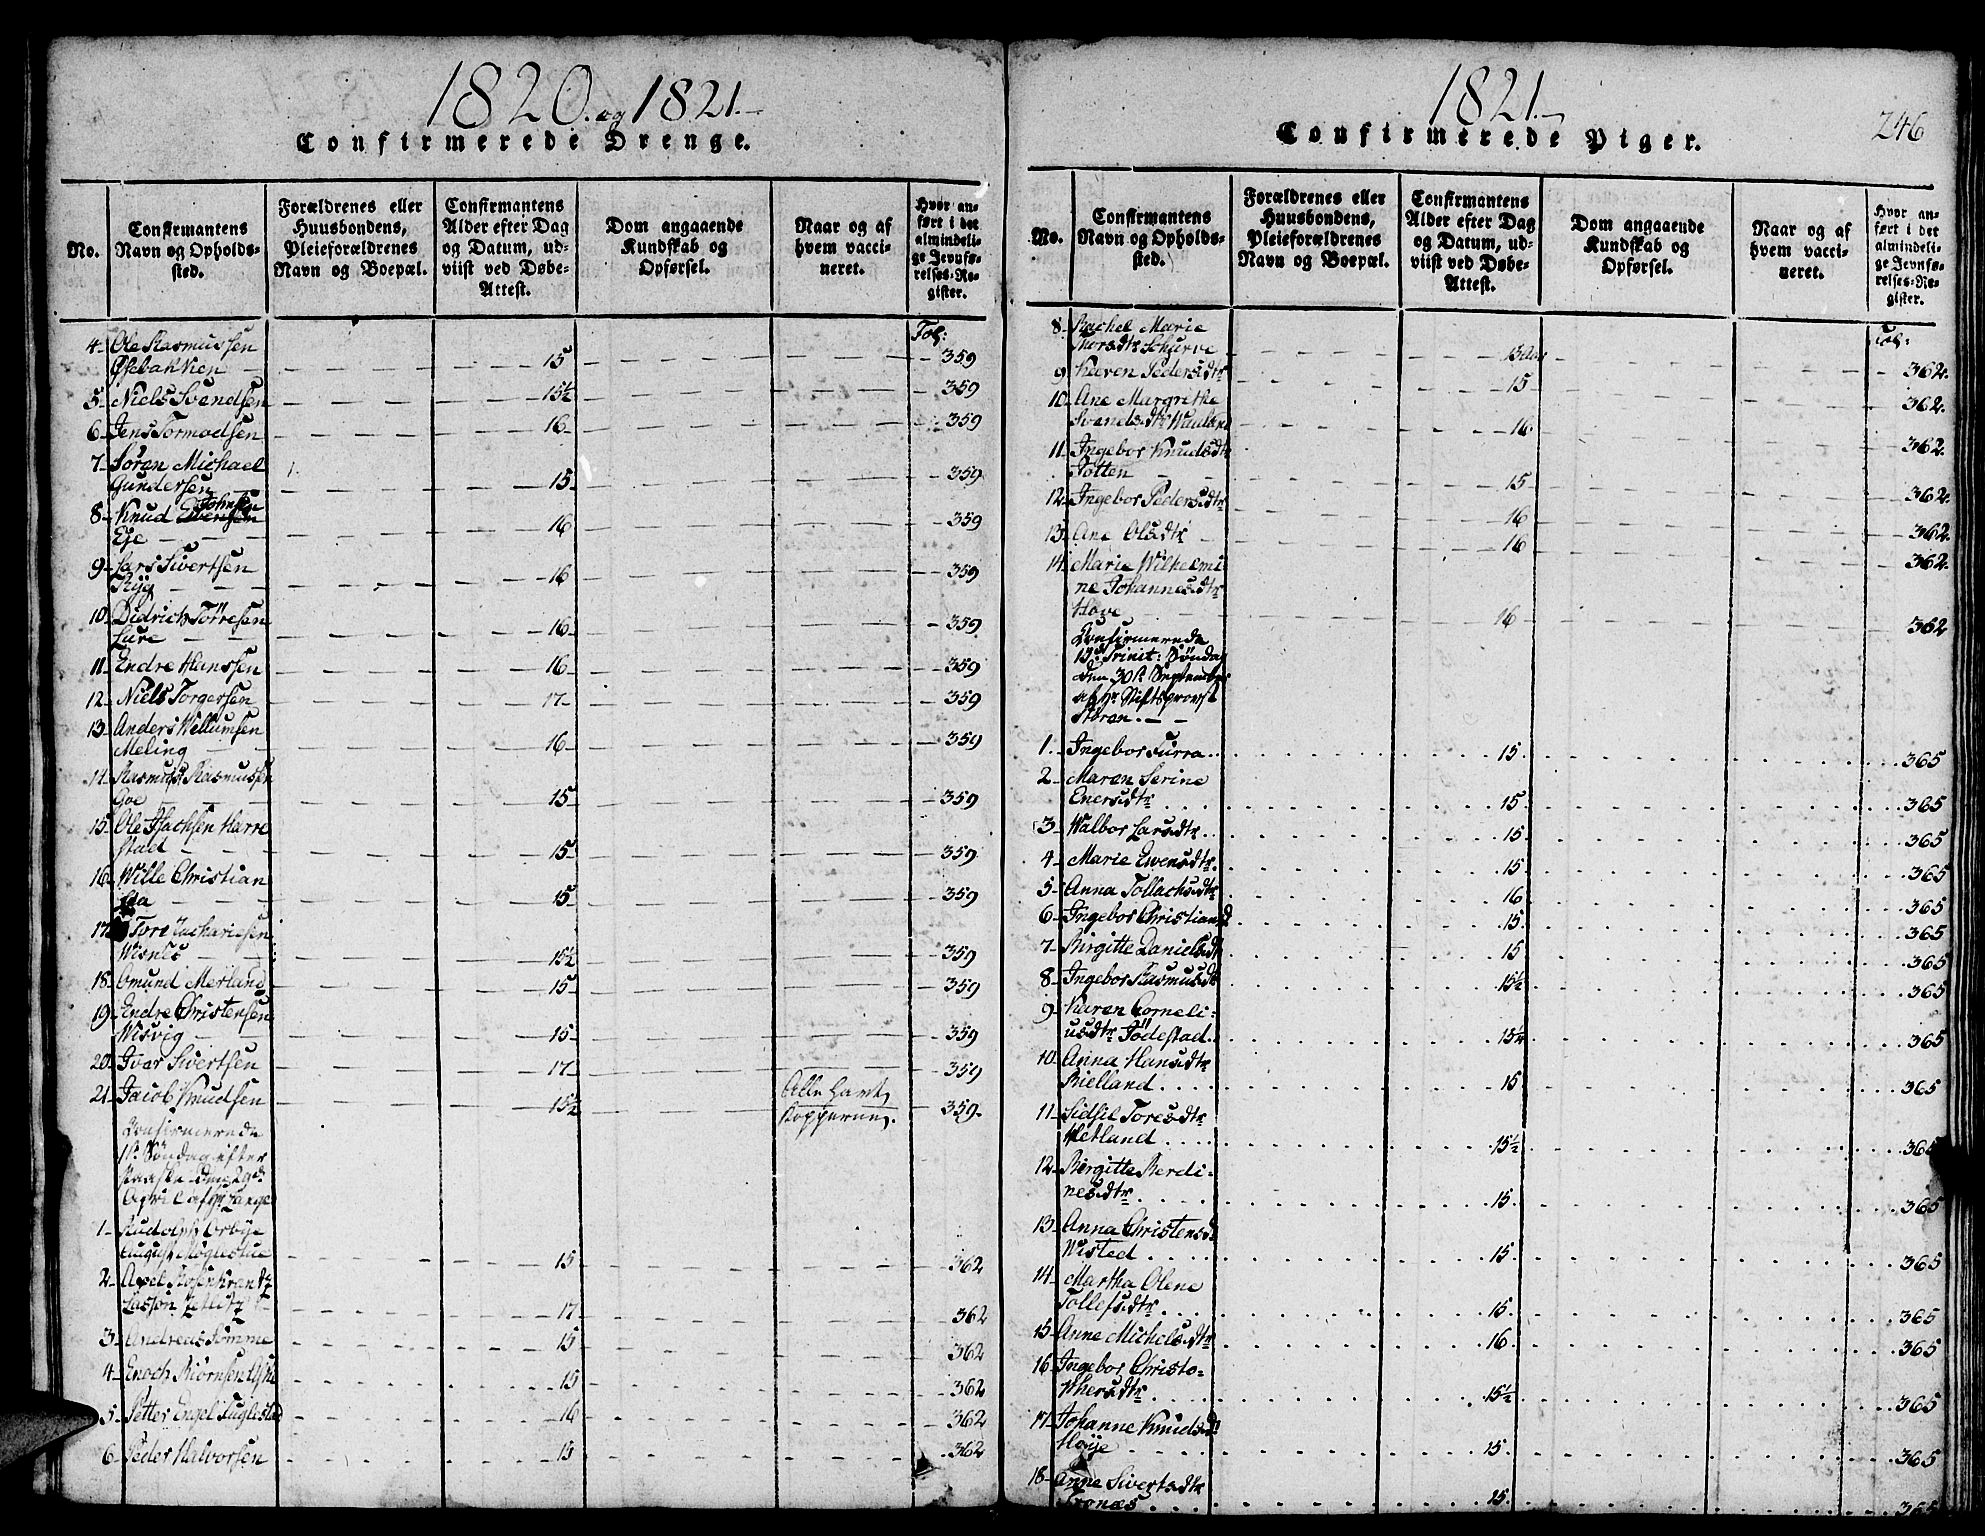 1820. og 1821.
Confirmerede Drenge.
No.
Confirmantens Navn og Opholdssted.
Forældrenes eller Huusbondens, Pleieforældrenes Navn og Boepæl.
Confirmantens Alder efter Dag og Datum, udviist ved Døbe-Attest.
Dom angaaende Kundskab og Opførsel.
Naar og af hvem vaccineret.
Hvor anført i det almindelige Jevnførelses-Register.
Fol:
4 Ole Rasmussen
15 359
5 Niels Svendsen 15½ 359
6 Jens Tormodsen 16 359
7 Søren Michael
Gundersen 15 359
8 Knud Johnsen
Eje 16 359
9 Lars Sivertsen
Ryg 16 359
10 Didrich Tørresen
Lure 16 359
11 Endre Hanssen 16 359
12 Niels Torgersen 17 359
13 Anders Wellumsen
Meling 16 359
14 Rasmus Rasmussen
Goe 15 359
15 Ole Isachsen Harre
stad 15 359
16 Wille Christian
15 359
17 Tore Zachariesen
Wisnes 15½ 359
18 Omund Merland 15 359
19 Endre Christensen
Wisvig 15 359
20 Ivar Sivertsen 17 359
21 Jacob Knudsen 15½ Alle havt Kopperne. 359.
Confirmerede
1ste Søndag efter
Paaske den 29de
April af Hr Lange
1 Rudolph
August 15 362
2 Axel Rosenkrantz
Lasson Zetlitz 17 362
3 Andreas Sømme 15 362
4 Enoch Biørnsen 15 362
5 Petter Engel Fuglestad 16 362
6 Peder Halvorsen 15 362
1821.
246
Confirmerede Piger.
No.
Confirmantens Navn og Opholdssted.
Forældrenes eller Huusbondens, Pleieforældrenes Navn og Boepæl.
Confirmantens Alder efter Dag og Datum, udviist ved Døbe-Attest.
Dom angaaende Kundskab og Opførsel.
Naar og af hvem vaccineret.
Hvor anført i det almindelige Jevnførelses-Register.
Fol:
8 Rachel Marie
Thorsdtr 15 Aar 362.
9 Karen Pedersdtr 15 362.
10 Ane Margrethe
Svendsdtr 16 362.
11 Ingebor Knudsdtr
15 362.
12 Ingebor Pedersdtr 16 362.
13 Ane Olsdtr 16 362.
14 Marie Wilhelmi
ne Johannesdtr
Hove 16 362
Confirmerede
15de Trinit: Søndag
den 30te September
af Hr Stiftsprovst
Støren.
1 Ingebor Surra 15 365
2 Maren Serine
Enersdtr 15 365
3 Walbor Larsdtr 15 365
4 Marie Evensdtr 15 365
5 Anna Tollachsdtr 16 365
6 Ingebor Christiansd 15 365
7 Birgitte Danielsdt 15 365
8 Ingebor Rasmusdt 15½ 365
9 Karen Corneli-
usdtr Jødestad 15¼ 365
10 Anna Hansdtr
Bielland 15 365
11 Sidsel Toresdtr
Hetland 15½ 365
12 Birgitte Berdi-
nesdtr 15 365
13 Anna Christensd
Wisted 15 365
14 Martha Olene
Tollefsdtr 15 365
15 Anne Michelsdtr 16 365
16 Ingebor Christo-
phersdtr 15½ 365
17 Johanne Knudsd
Høye 15 365
18 Anne Sivertsdtr
Tronæs 15 365